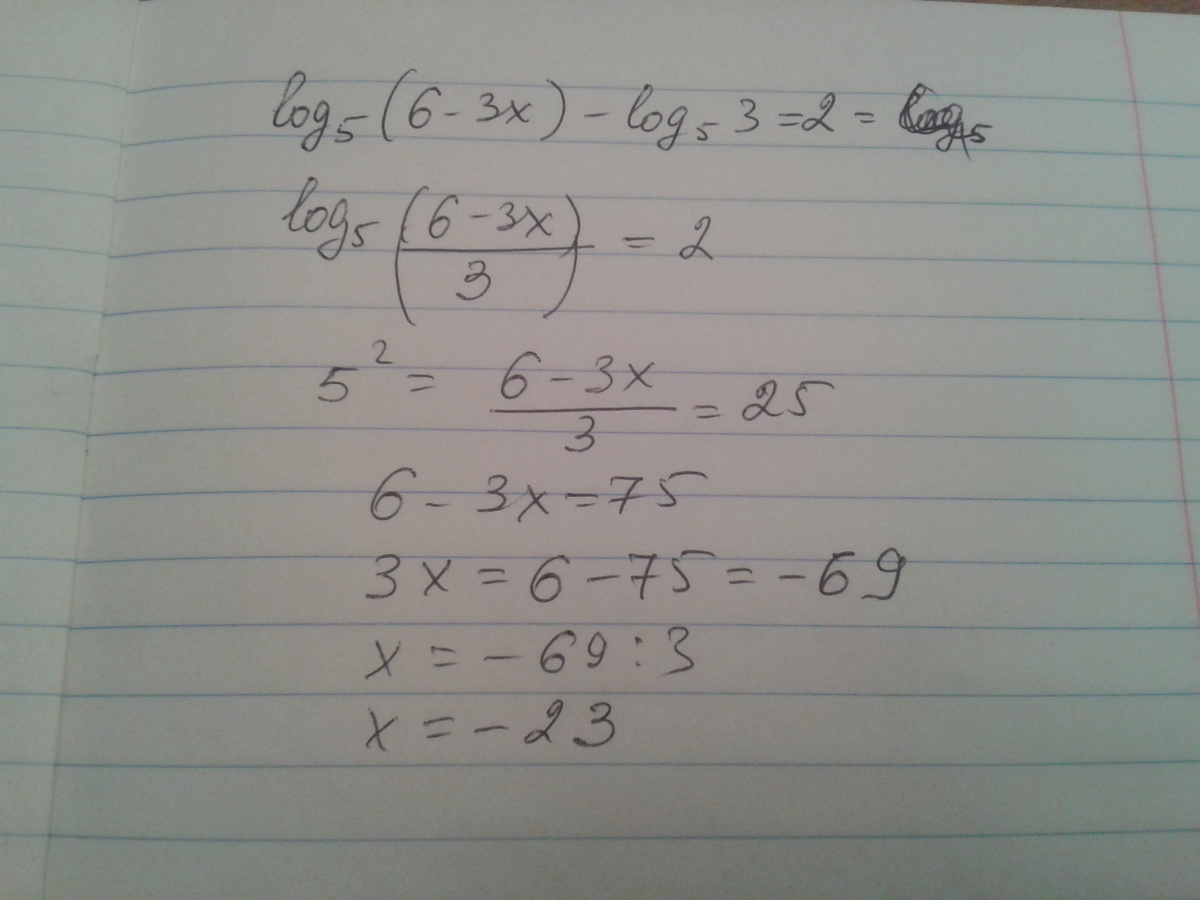 log₅(6-3x)-log₅3=2=
log₅((6-3x)/3)=2
5²=(6-3x)/3=25
6-3x=75
3x=6-75=-69
x=-69:3
x=-23